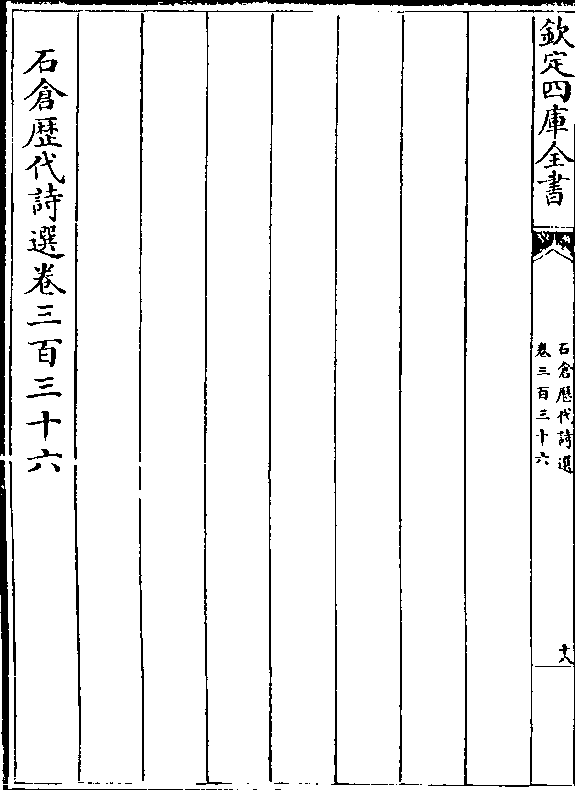 欽定四庫全書
石倉歴代詩選
卷三百三十六
十八
石倉歴代詩選卷三百三十六